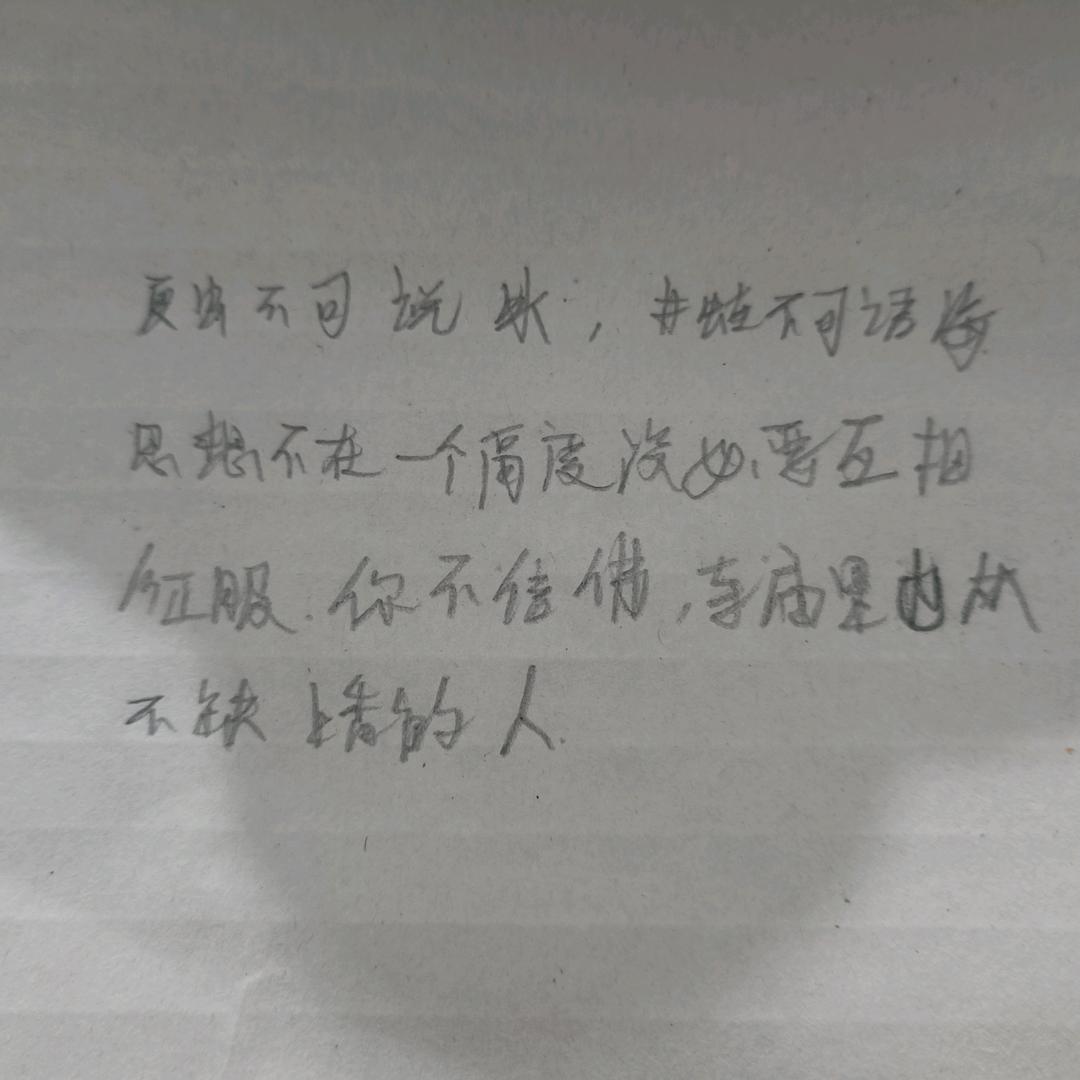 夏虫不可说冰，井蛙不可语海
思想不在一个高度没必要互相
征服.你不信佛,寺庙里也从
不缺上香的人.